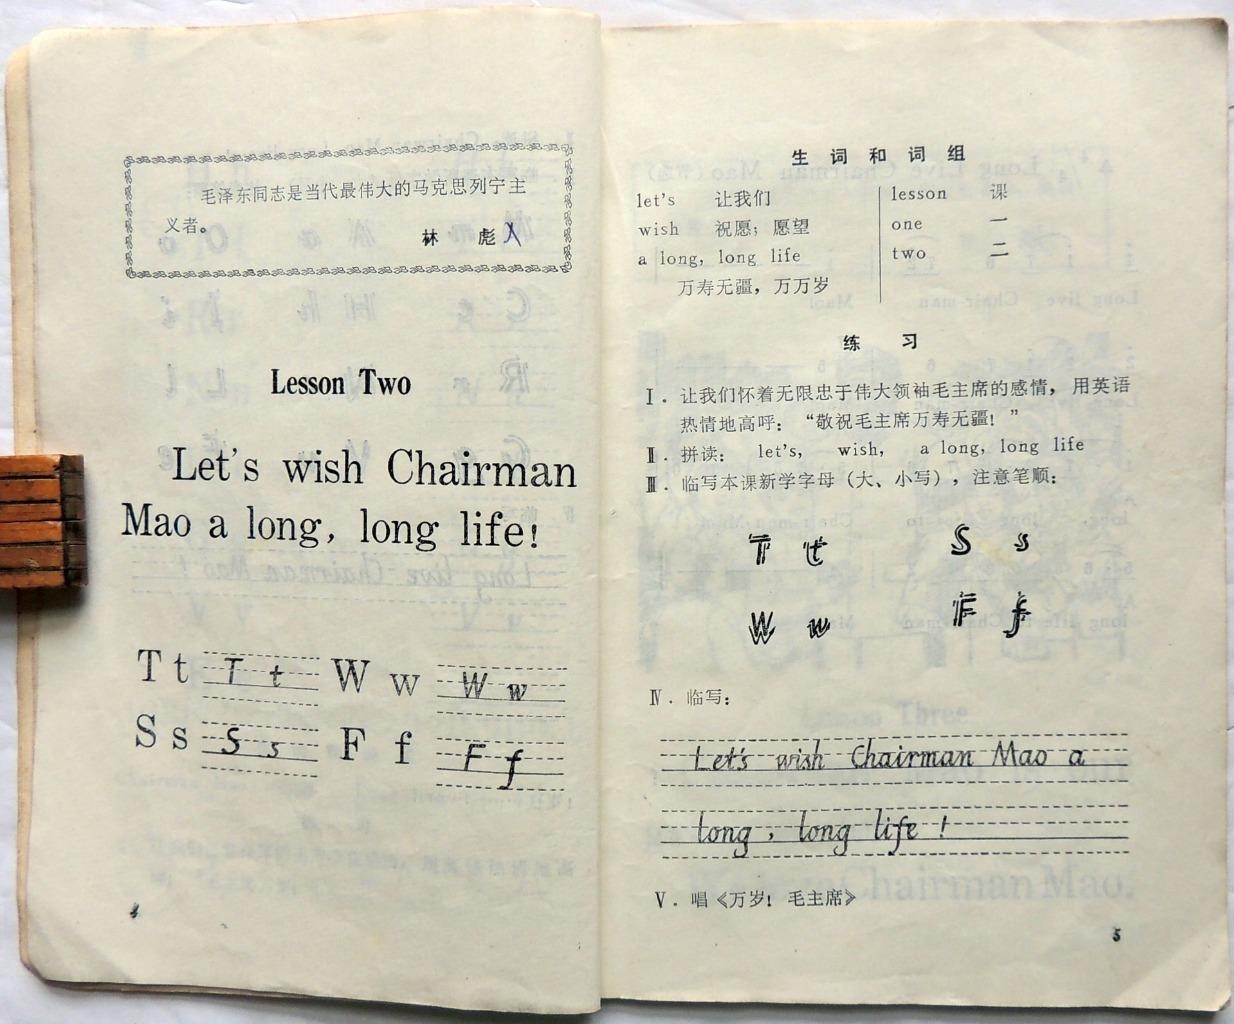 毛泽东同志是当代最伟大的马克思列宁主
义者。
林 彪
Lesson Two
Let's wish Chairman
Mao a long, long life!
T t T t W w W w
S s S s F f F f
4
生词和词组
let's 让我们
wish 祝愿；愿望
a long, long life
万寿无疆，万万岁
lesson 课
one 一
two 二
练 习
Ⅰ．让我们怀着无限忠于伟大领袖毛主席的感情，用英语
热情地高呼：“敬祝毛主席万寿无疆！”
Ⅱ．拼读： let's, wish, a long, long life
Ⅲ．临写本课新学字母（大、小写），注意笔顺：
T t S s
W w F f
Ⅳ．临写：
Let's wish Chairman Mao a
long, long life!
Ⅴ．唱《万岁！毛主席》
5